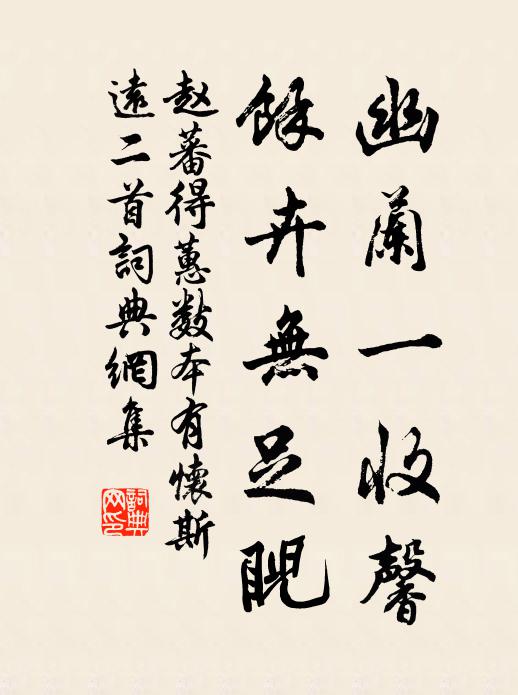 幽蘭一收馨
餘卉無足睨
赵蕃得蕙数本有懷斯
遠二首詞典網集
詞典
网印